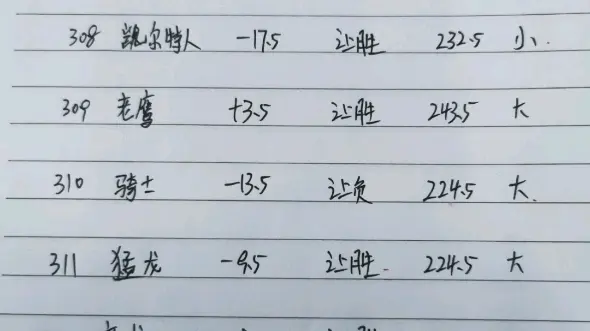 308 凯尔特人 -17.5 让胜 232.5 小.
309 老鹰 +3.5 让胜 243.5 大
310 骑士 -13.5 让负 224.5 大.
311 猛龙 -9.5 让胜. 224.5 大